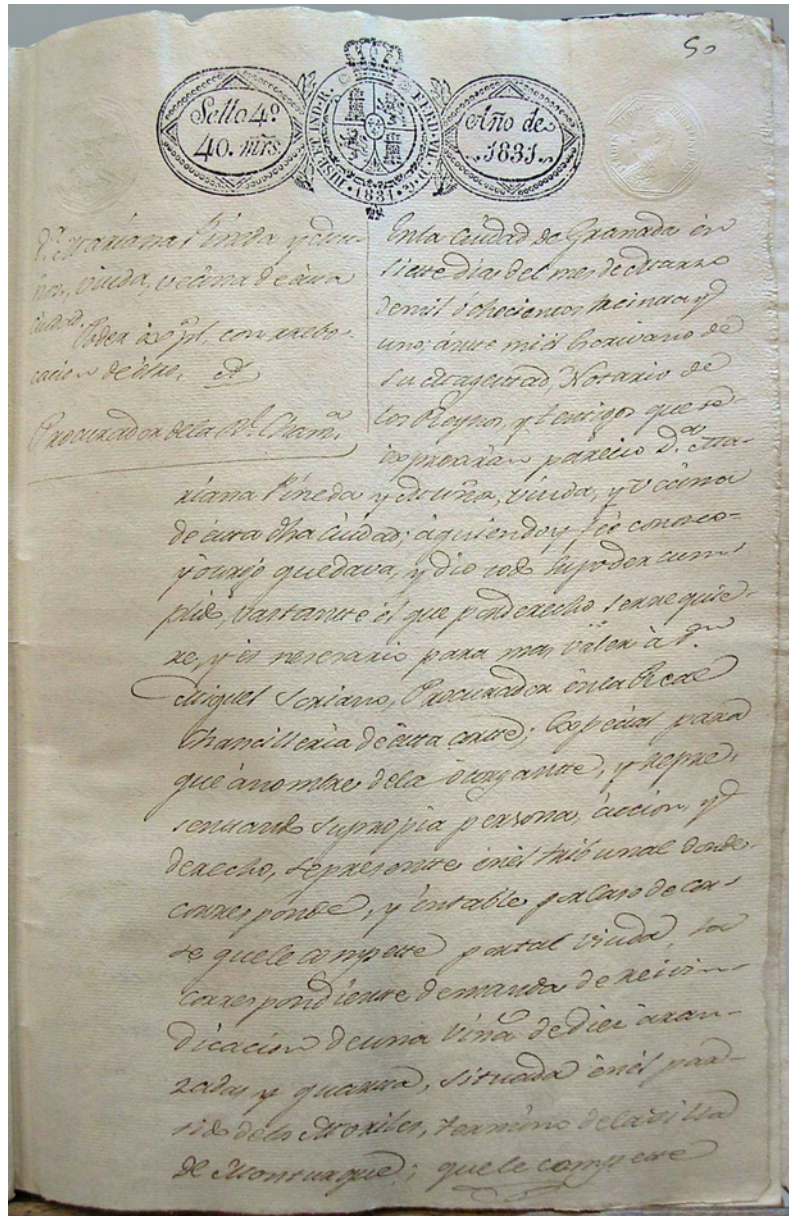 50
Sello 4º
40. mrs.
HISP. ET IND. R. FERD. VII. D. G. 1831
Año de
1831
D.ª Mariana Pineda y Mu-
ñoz, viuda, vecina de esta
ciudad.
Poder esp.l con rrebo-
cacion de otro, A
Procurador de la R.l Chan.ª
En la Ciudad de Granada en
siete dias del mes de Marzo
de mil ochocientos treinta y
uno; ante mi el Escrivano de
Su Magestad, Notario de
los Reynos, y testigos que se
expresarán, parecio D.ª Ma-
riana Pineda y Muñoz, viuda, y vecina
de esta dha Ciudad; a quien doy fee conozco
y otorgó que dava, y dio todo su poder cum-
plido, vastante el que por derecho se rrequie-
re, y es nesesario para mas valer à D.n
Miguel Soriano, Procurador en la Real
Chancilleria de esta corte; Especial para
que à nombre de la otorgante, y repre-
sentando su propia persona, accion, y
derecho, se presente en el tribunal donde
corresponde, y entable por Caso de cor-
te que le compette por tal viuda, la
correspondiente demanda de reivin-
dicacion de una viña de diez aran-
zadas y quarta, situada en el par-
tido de los Moriles, termino de la villa
de Monturque; que le compette